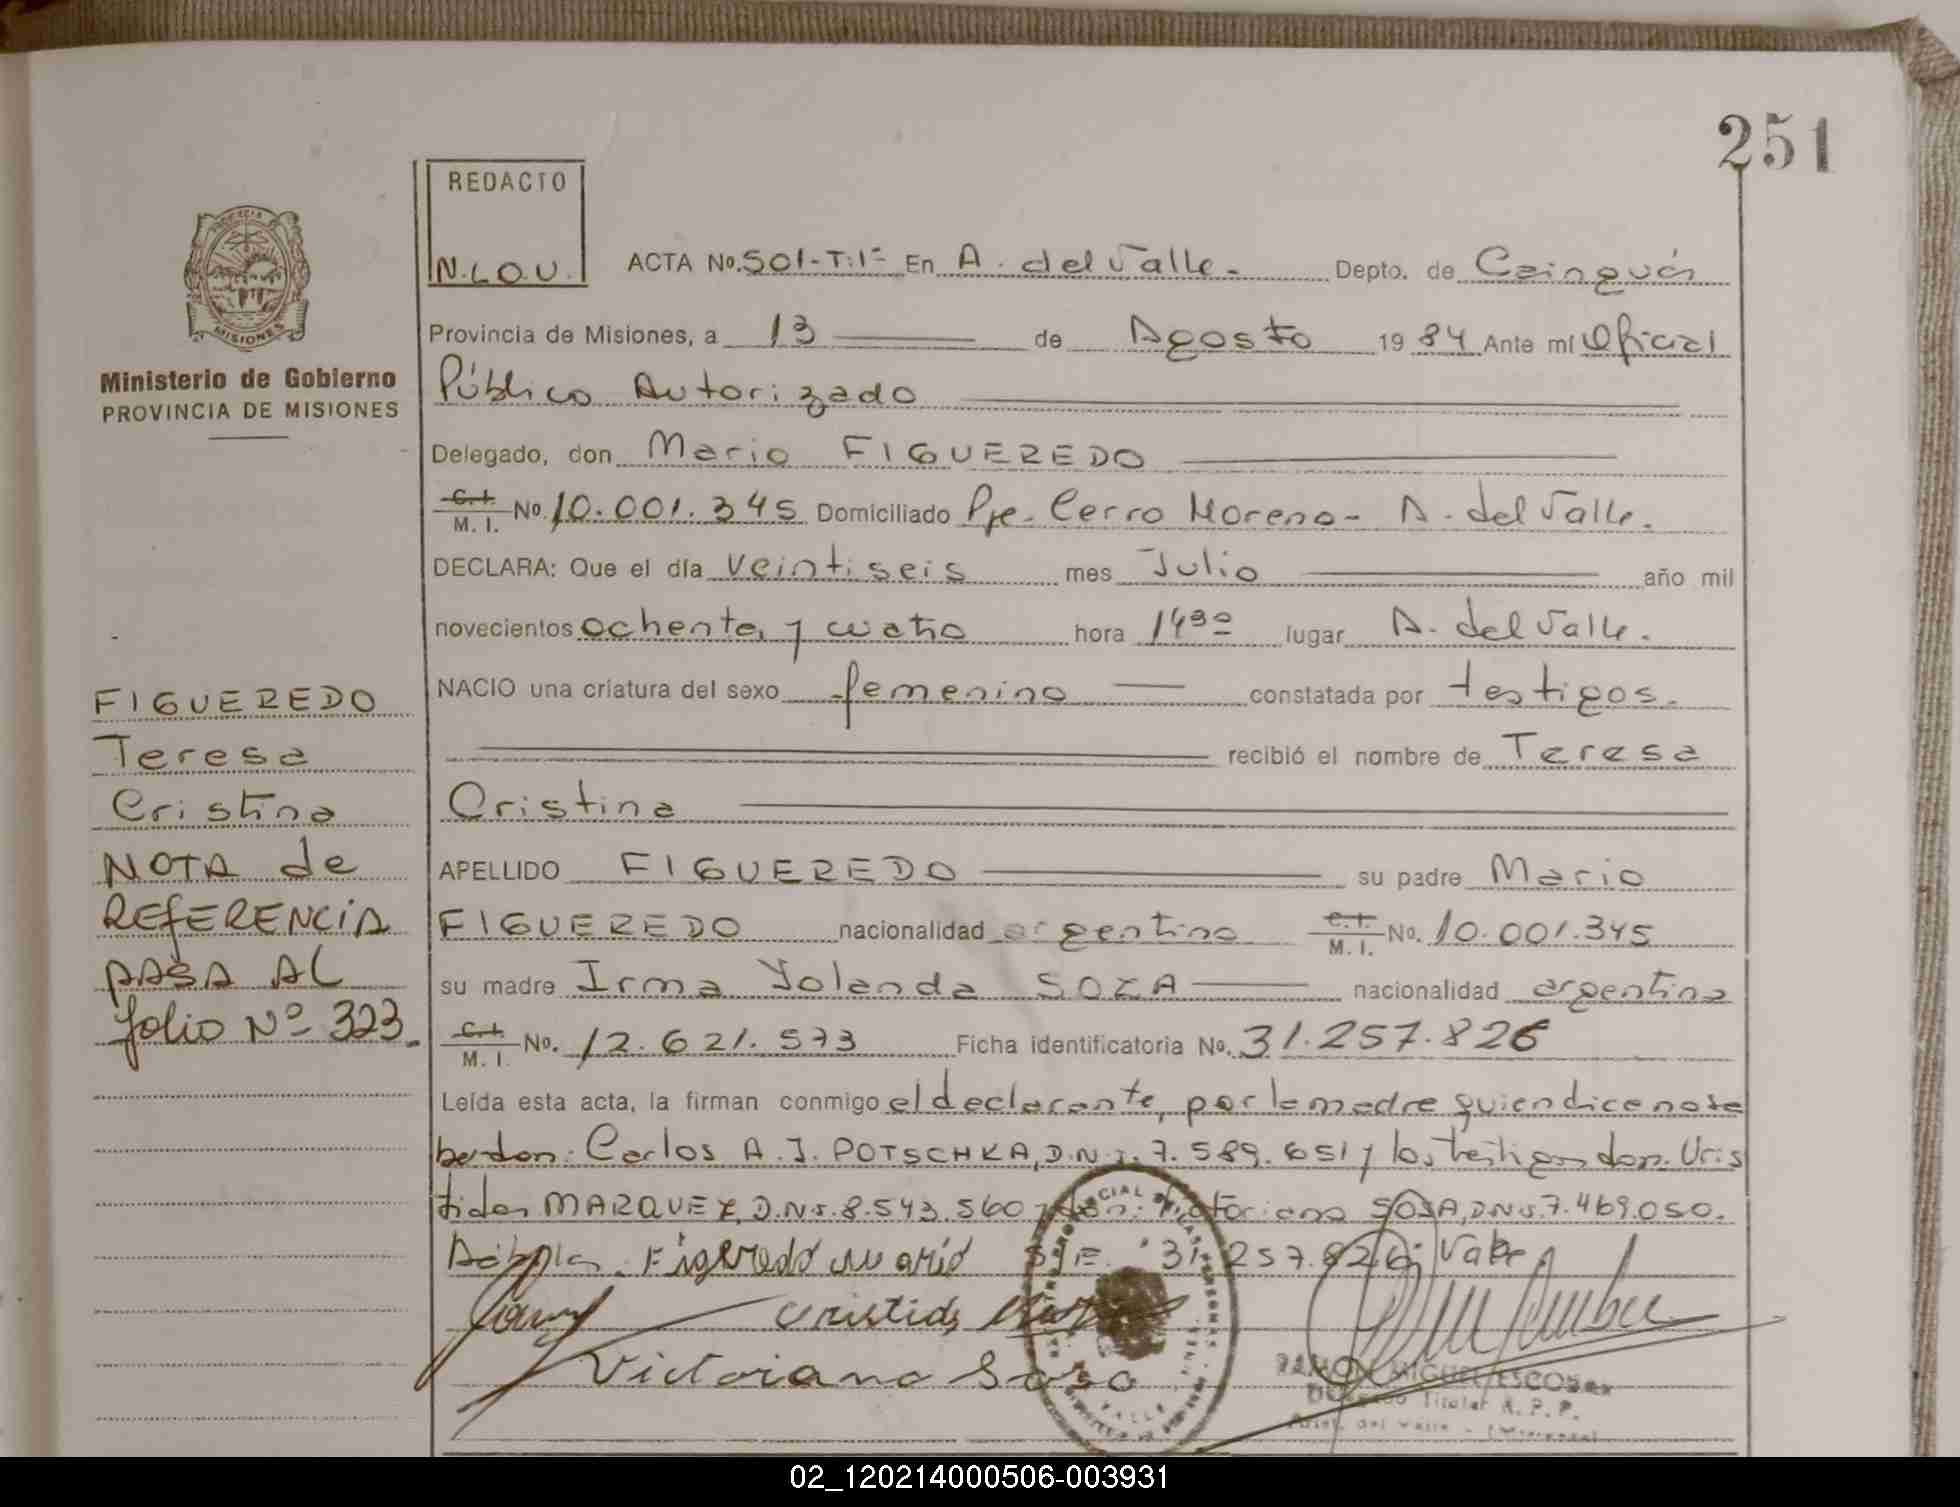 251
REDACTO
N.L.O.U.
ACTA No. 501-T:1º En A. del Valle. Depto. de Cainguás
Provincia de Misiones, a 13 de Agosto 1984 Ante mí Oficial
Público Autorizado
Delegado, don Mario FIGUEREDO
C.I. M.I. No. 10.001.345 Domiciliado Pje. Cerro Moreno - A. del Valle.
DECLARA: Que el día veintiseis mes Julio año mil
novecientos ochenta y cuatro hora 14³⁰ lugar A. del Valle.
NACIO una criatura del sexo femenino constatada por testigos.
recibió el nombre de Teresa
Cristina
APELLIDO FIGUEREDO su padre Mario
FIGUEREDO nacionalidad argentino C.I. M.I. No. 10.001.345
su madre Irma Yolanda SOZA nacionalidad argentina
C.I. M.I. No. 12.621.573 Ficha identificatoria No. 31.257.826
Leída esta acta, la firman conmigo el declarante, por la madre quien dice no sa
ber don: Carlos A. J. POTSCHKA, D.N.I. 7.589.651 y los testigos don. Uris
tides MARQUEZ, D.N.I. 8.543.560 y don: Victoriano SOSA, D.N.I. 7.469.050.
Figeredo Mario S/E. 31.257.826: Vale.
Uristides
Victoriano Soso
RAMON MIGUEL ESCOBAR
Titular R.P.P.
del Valle - (Misiones)
MISIONES
Ministerio de Gobierno
PROVINCIA DE MISIONES
FIGUEREDO
Teresa
Cristina
NOTA de
REFERENCIA
PASA AL
folio Nº 323.
02_120214000506-003931